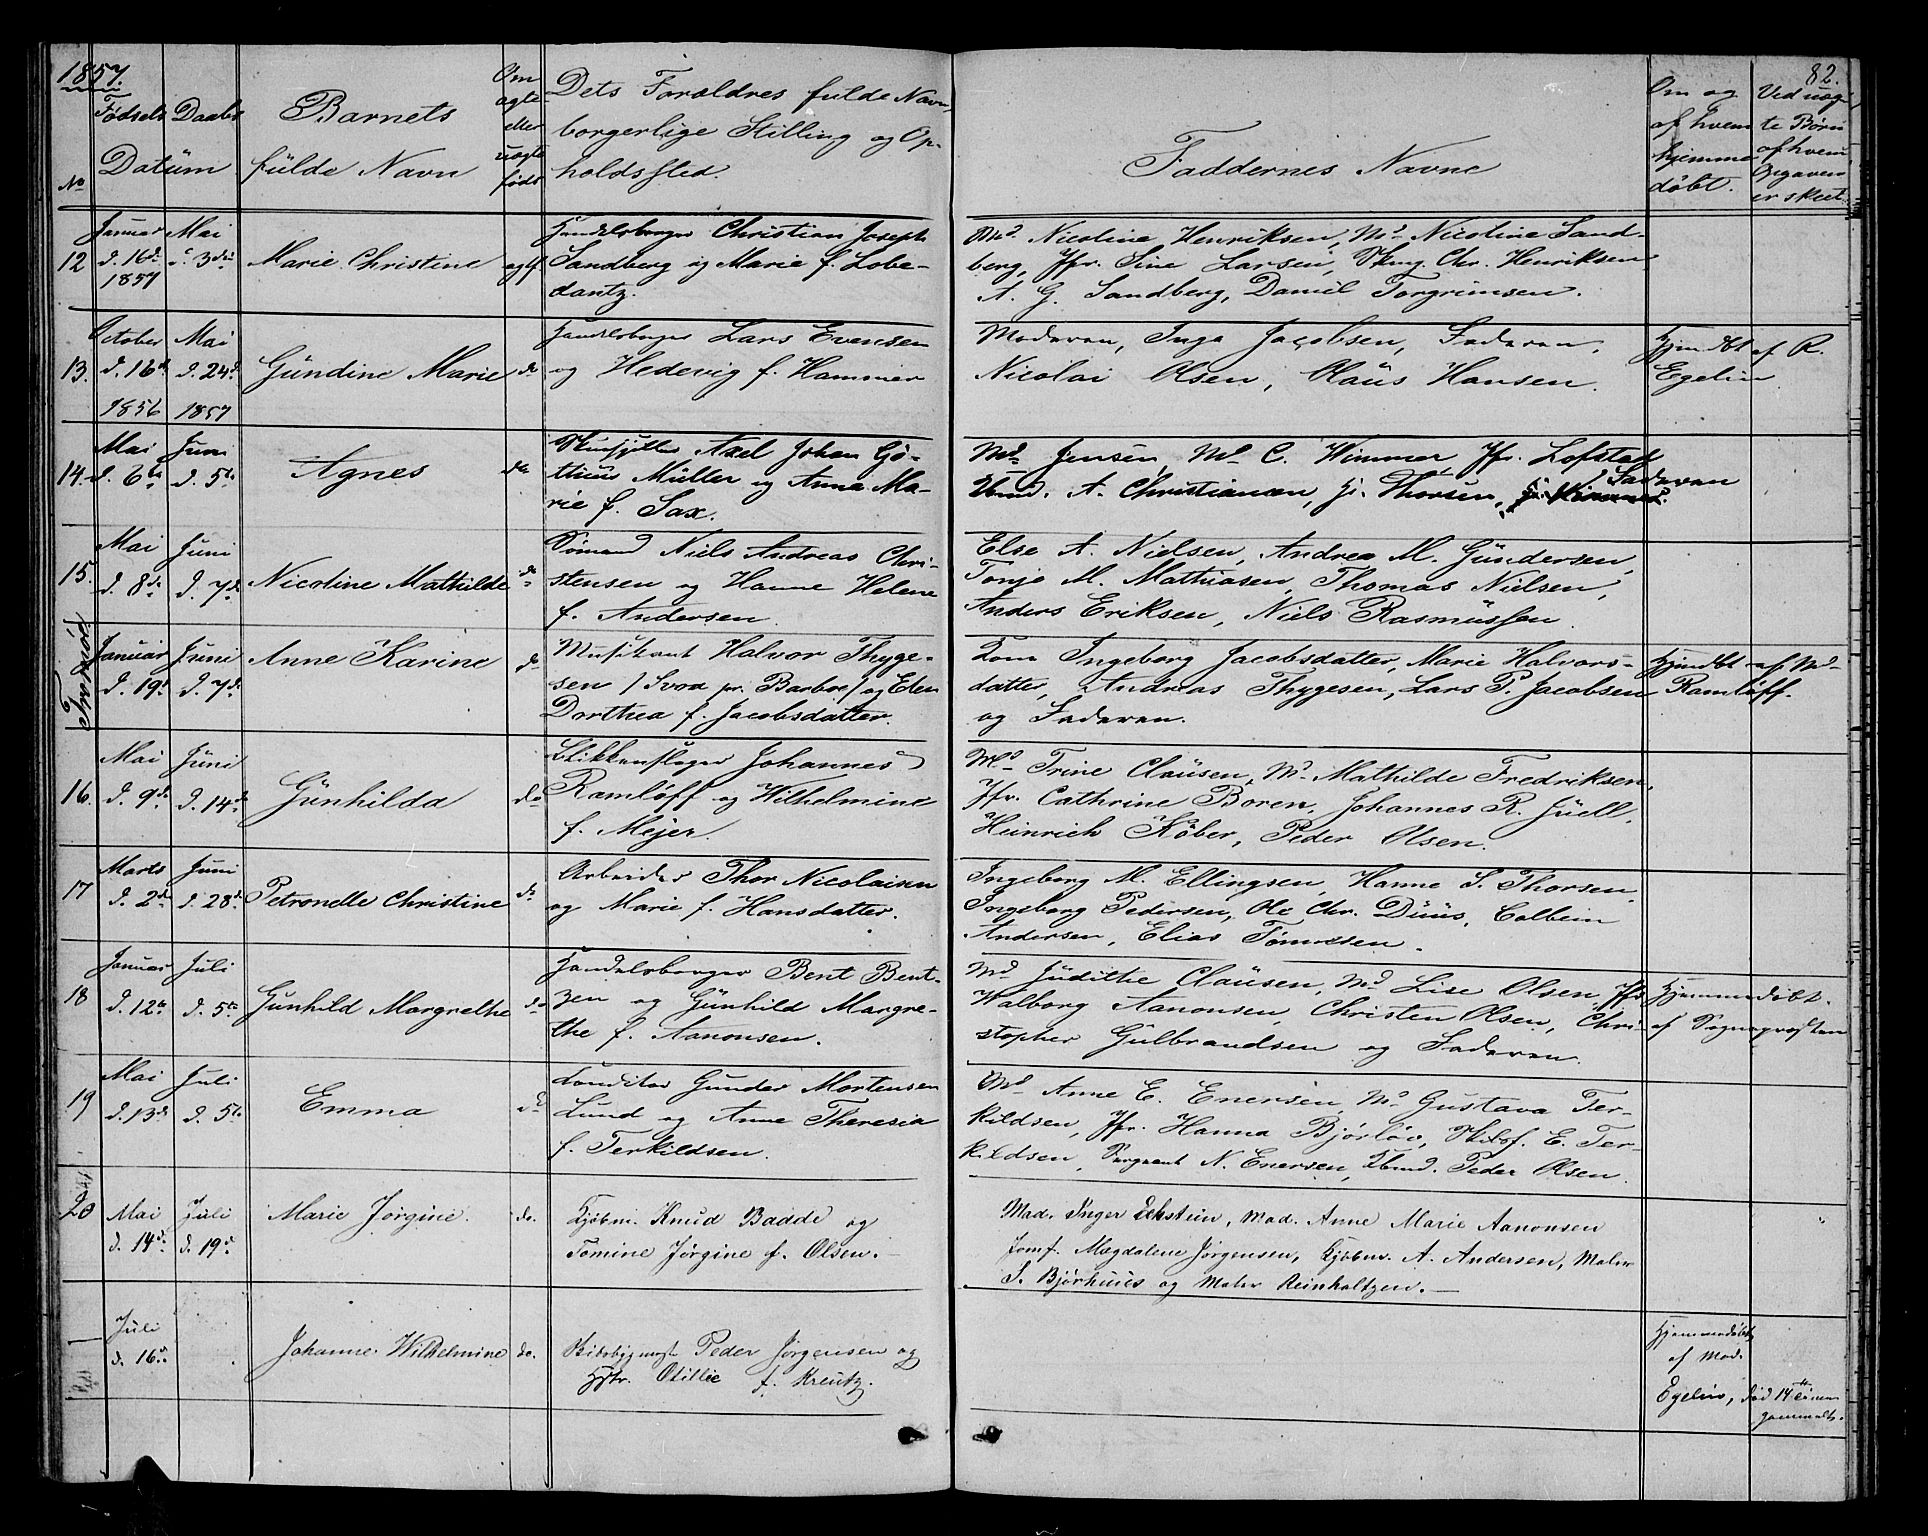 1857.
82.
No
Fødsels
Daabs
Datum
Barnets
fulde Navn
Om
ægte
eller
uægte
født
Dets Foraldres fulde Navn,
borgerlige Stilling og Op-
holdssted.
Faddernes Navne
Om og
af hvem
hjemme
døbt.
Ved uæg-
te Børn
af hvem
Opgaven
er skeet.
12
Januar
d. 16d
1857
Mai
d. 3die
Marie Christine
ægte
Handelsborger Christian Joseph
Sandberg og Marie f. Lobe-
dantz.
Md. Nicoline Henriksen, Md. Nicoline Sand-
berg, Jfr. Sine Larsen, Chr. Henriksen,
A. G. Sandberg, Daniel Torgrimsen.
13.
October
d. 16d
1856
Mai
d. 24d
1857
Gündine Marie
do
Handelsborger Lars Evensen
og Hedevig f. Hammer
Moderen, Inga Jacobsen, Faderen,
Nicolai Olsen, Olaüs Hansen.
Hjemdbt af R.
Egelin
14.
Mai
d. 6te
Juni
d. 5te
Agnes
do
Axel Johan Gö-
thius Müller og Anna Ma-
rie f. Sax.
Md. Jensen, Md. C. Wimmer, Jfr. Lofstad
Kbmd. A. Christiansen, H. Thorsen, Faderen
15.
Mai
d. 8d.
Juni
d. 7d.
Nicoline Mathilde
do
Sømand Niels Andreas Chri-
stensen og Hanne Helene
f. Andersen
Else A. Nielsen, Andrea M. Gündersen,
Tonje M. Mathiasen, Thomas Nielsen,
Anders Eriksen, Niels Rasmüssen.
Januar
d. 19d
Juni
d. 7d.
Anne Karine
do
Musikant Halvor Thyge-
sen / Svoa pr. Barboe / og Elen
Dorthea f. Jacobsdatter.
Kone Ingeborg Jacobsdatter, Marie Halvors-
datter, Andreas Thygesen, Lars P. Jacobsen
og Faderen.
Hjemdbt af Md
Ramløff.
16.
Mai
d. 9d.
Juni
d. 14d.
Günhilda
do
Blikkenslager Johannes
Ramløff og Wilhelmine
f. Mejer.
Md. Trine Claüsen, Md. Mathilde Fredriksen,
Jfr. Cathrine Boren, Johannes R. Jüell,
Heinrich Köber, Peder Olsen.
17
Marts
d. 2d
Juni
d. 28d.
Petronelle Christine
do
Arbeider Thor Nicolaisen
og Marie f. Hansdatter.
Ingeborg M. Ellingsen, Hanne S. Thorsen,
Ingeborg Pedersen, Ole Chr. Düüs, Colbein
Andersen, Elias Tønnesen.
18
Januar
d. 12te
Juli
d. 5te
Gunhild Margrethe
do
Handelsborger Bent Bent-
zen og Günhild Margre-
the f. Aanonsen.
Md. Jüdithe Claüsen, Md. Lise Olsen, Jfr.
Walborg Aanonsen, Christen Olsen, Chri-
stopher Gülbrandsen og Faderen.
Hjemmedøbt.
af Sognepræsten
19
Mai
d. 13d
Juli
d. 5te
Emma
do
Conditor Gunder Mortensen
Lund og Anne Theresia
f. Terkildsen.
Md. Anne E. Enersen, Md. Gustava Ter-
kildsen, Jfr. Hanna Bjørløv, Skibsf. E. Ter-
kildsen, Sergeant N. Enersen, Kbmd. Peder Olsen.
20
Mai
d. 14d.
Juli
d. 19d
Marie Jørgine.
do.
Kjøbm. Knud Baade og
Tomine Jørgine f. Olsen.
Mad. Inger Ekstein, Mad. Anne Marie Aanonsen
Jomf. Magdalene Jørgensen, Kjøbm. A. Andersen, Maler
S. Bjørhuus og Maler Reinholtzen.
Juli
d. 16d.
Johanne Wilhelmine
do.
Skibsbygmegt Peder Jørgensen og
Hstr. Otillie f. Kreutz.
Hjemmedøbt
af Mad.
Egelin, død 14 Timer
gammelt.